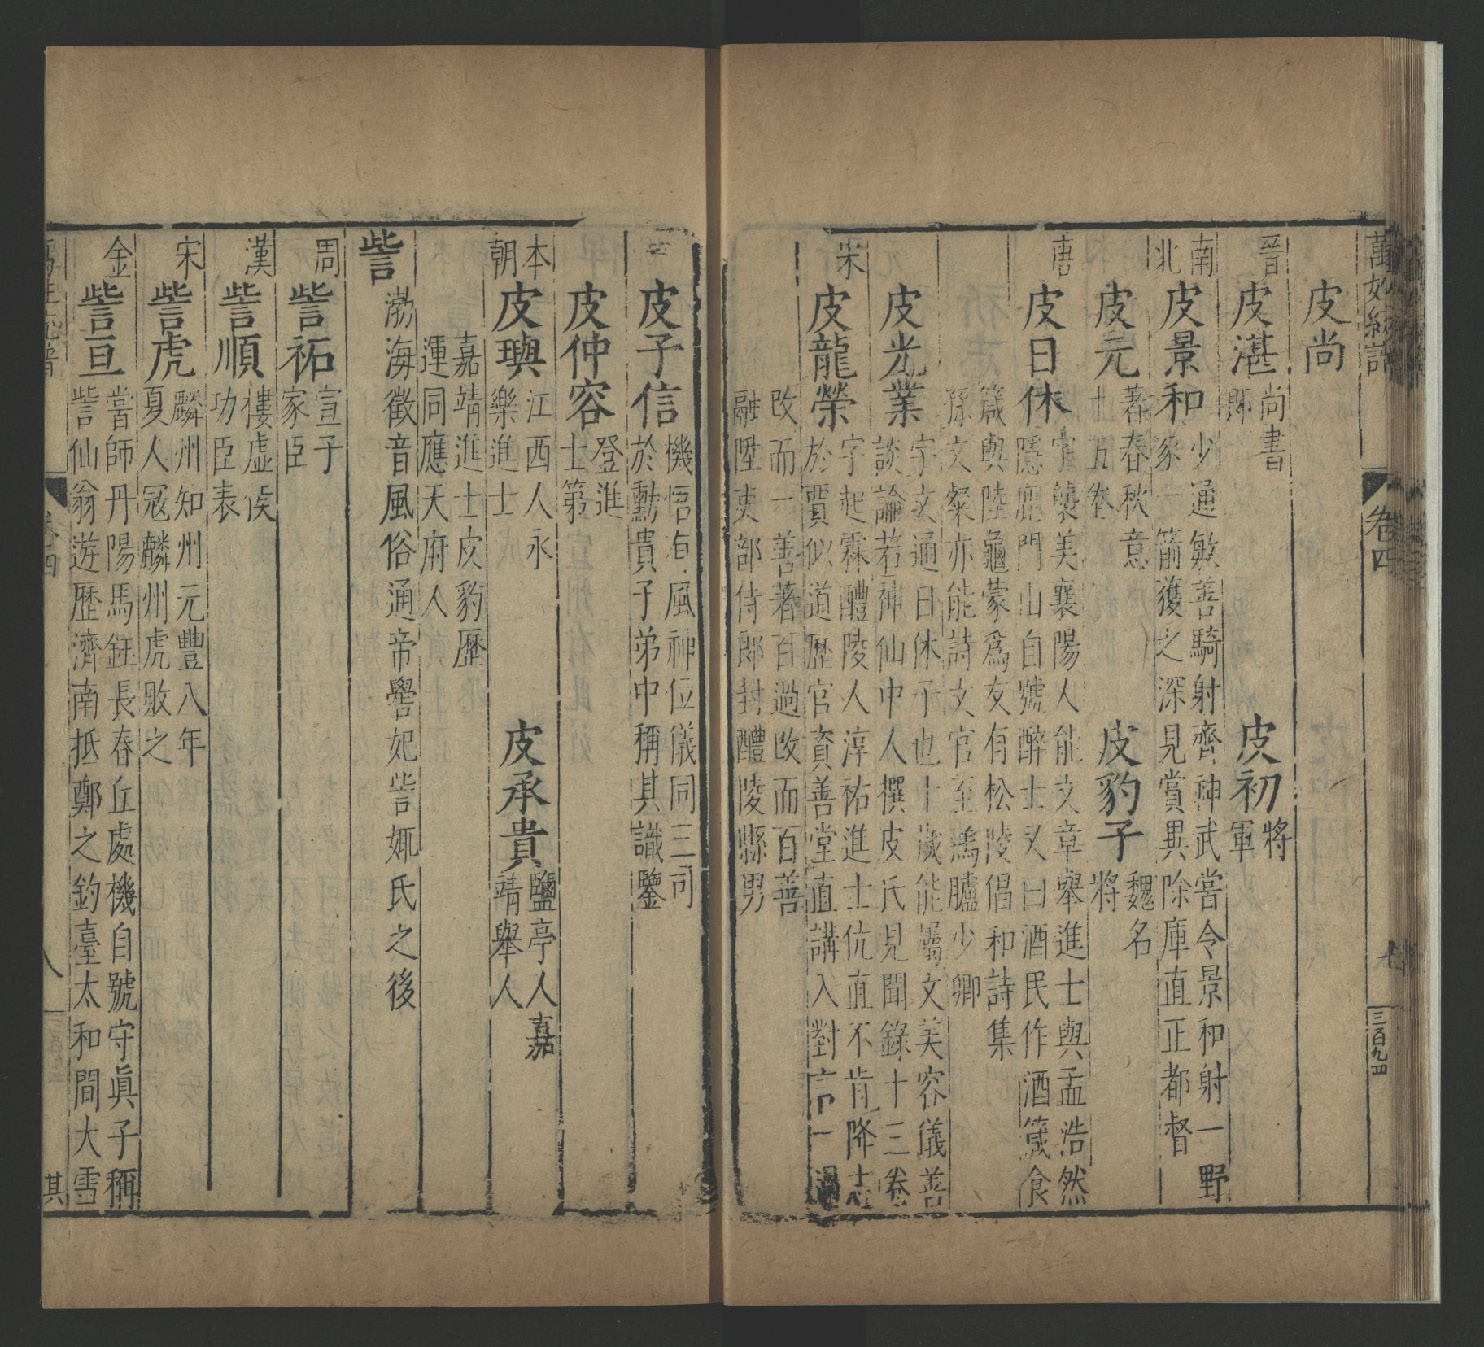 萬姓統譜
卷四
七
三百九四
皮尚
晉
皮湛
尚書
郎
皮初
將
軍
南
北
皮景和
少通敏善騎射齊神武嘗令景和射一野
豕一箭獲之深見賞異除庫直正都督
皮元
著春秋意
十五卷
皮豹子
魏名
將
唐
皮日休
字襲美襄陽人能文章舉進士與孟浩然
隱鹿門山自號醉士又曰酒民作酒箴食
箴與陸龜蒙爲友有松陵倡和詩集
孫文粲亦能詩文官至鴻臚少卿
皮光業
字文通日休子也十歲能屬文美容儀善
談論若神仙中人撰皮氏見聞錄十三卷
宋
皮龍榮
字起霖醴陵人淳祐進士伉直不肯降志
於賈似道歷官資善堂直講入對言一過
改而一善著百過改而百善
融陞吏部侍郎封醴陵縣男
皮子信
機悟有風神位儀同三司
於勳貴子弟中稱其識鑒
皮仲容
登進
士第
本
朝
皮璵
江西人永
樂進士
皮承貴
鹽亭人嘉
靖舉人
嘉靖進士皮豹歷
運同應天府人
訾
渤海徵音風俗通帝嚳妃訾娵氏之後
周
訾祏
宣子
家臣
漢
訾順
樓虛侯
功臣表
宋
訾虎
麟州知州元豐八年
夏人寇麟州虎敗之
金
訾亘
嘗師丹陽馬鈺長春丘處機自號守眞子稱
訾仙翁遊歷濟南抵鄭之釣臺太和間大雪
萬姓統譜
卷四
八
其